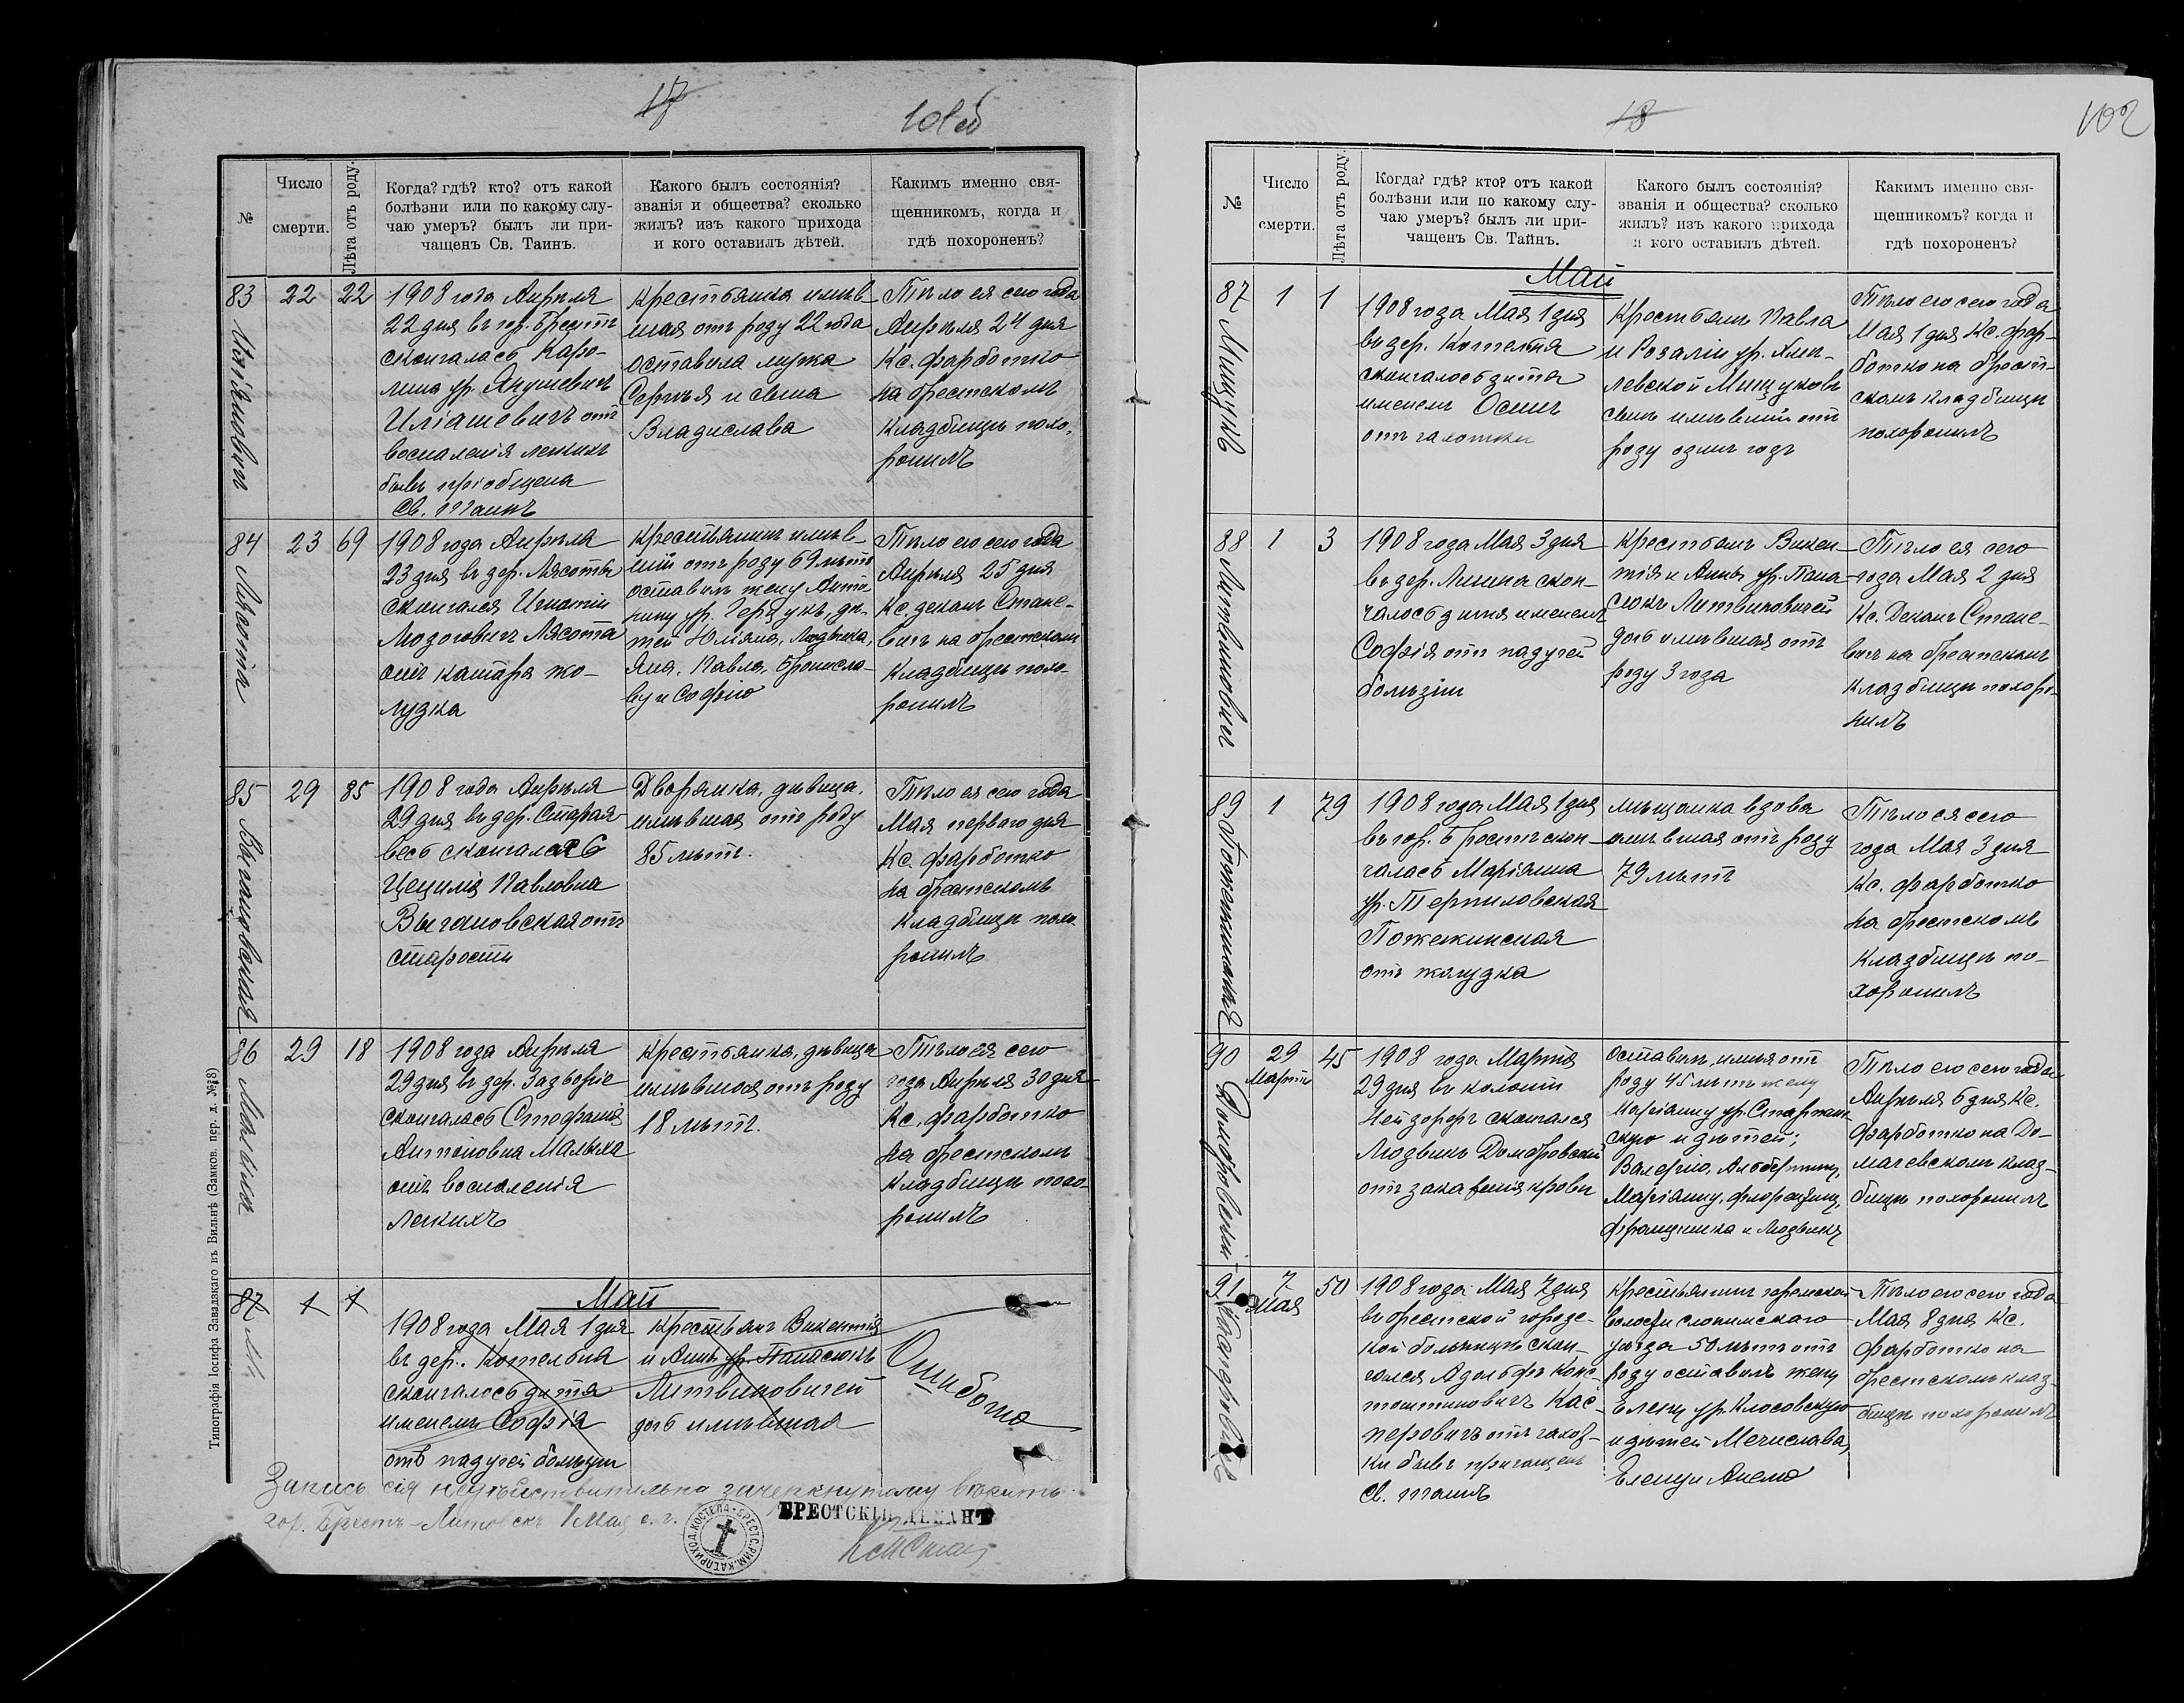 17
101об
№
Число
смерти.
Лѣта отъ роду.
Когда? гдѣ? кто? отъ какой
болѣзни или по какому слу-
чаю умеръ? былъ ли при-
чащенъ Св. Таинъ.
Какого былъ состоянія?
званія и общества? сколько
жилъ? изъ какого прихода
и кого оставилъ дѣтей.
Какимъ именно свя-
щенникомъ, когда и
гдѣ похороненъ?
83
22
22
1908 года Апрѣля
22 дня въ гор. Брестѣ
скончалась Каро-
лина ур. Янушевичъ
Иліашевичъ отъ
воспаленія легкихъ
бывъ пріобщена
Св. Таинъ
Крестьянка имѣв-
шая отъ роду 22 года
оставила мужа
Сергѣя и сына
Владислава
Тѣло ея сего года
Апрѣля 24 дня
Кс. Фарботко
на брестскомъ
кладбищѣ похо-
ронилъ
84
Лясота
23
69
1908 года Апрѣля
23 дня въ дер. Лясоты
скончался Игнатій
Лясота
отъ катара же-
лудка
Крестьянинъ имѣв-
шій отъ роду 69 лѣтъ
оставилъ жену Анто-
нину ур. Герщукъ, дѣ-
тей Юліана, Людвика,
Яна, Павла, Бронисла-
ву и Софію
Тѣло его сего года
Апрѣля 25 дня
Кс. деканъ Стане-
вичъ на брестскомъ
кладбищѣ похо-
ронилъ
85
Выгановская
29
85
1908 года Апрѣля
29 дня въ дер. Старая
весь скончалась
Цецилія Павловна
Выгановская отъ
старости
Дворянка, дѣвица,
имѣвшая отъ роду
85 лѣтъ.
Тѣло ея сего года
Мая перваго дня
Кс. Фарботко
на брестскомъ
кладбищѣ похо-
ронилъ
86
Малыха
29
18
1908 года Апрѣля
29 дня въ дер. Задворіе
скончалась Стефанія
Антоновна Малыха
отъ воспаленія
легкихъ
Крестьянка, дѣвица
имѣвшая отъ роду
18 лѣтъ.
Тѣло ея сего
года Апрѣля 30 дня
Кс. Фарботко
на брестскомъ
кладбищѣ похо-
ронилъ
Май
87
1
1
1908 года Мая 1 дня
въ дер. Котельня
скончалось дитя
именемъ Софія
отъ падучей болѣзни
Крестьянъ Викентія
и Анны ур. Панасюкъ
Литвиновичей
дочь имѣвшая
Ошибочно
Запись сія недѣйствительна зачеркнутому вѣрить
гор. Брестъ-Литовскъ 1 Мая с. г.
БРЕСТСКІЙ ДЕКАНЪ
Типографія Іосифа Завадзкаго въ Вильнѣ (Замков. пер. д. № 8)
18
102
№
Число
смерти.
Лѣта отъ роду.
Когда? гдѣ? кто? отъ какой
болѣзни или по какому слу-
чаю умеръ? былъ ли при-
чащенъ Св. Тайнъ.
Какого былъ состоянія?
званія и общества? сколько
жилъ? изъ какого прихода
и кого оставилъ дѣтей.
Какимъ именно свя-
щенникомъ? когда и
гдѣ похороненъ?
Май
87
Мицукъ
1
1
1908 года Мая 1 дня
въ дер. Котельня
скончалось дитя
именемъ Осипъ
отъ чахотки
Крестьянъ Павла
и Розаліи ур.
Мицуковъ
сынъ имѣвшій отъ
роду одинъ годъ
Тѣло его сего года
Мая 1 дня Кс. Фар-
ботко на брест-
скомъ кладбищѣ
похоронилъ
88
Литвиновичъ
1
3
1908 года Мая 3 дня
въ дер. скон-
чалось дитя именемъ
Софія отъ падучей
болѣзни
Крестьянъ Викен-
тія и Анны ур. Пана-
сюкъ Литвиновичей
дочь имѣвшая отъ
роду 3 года
Тѣло ея сего
года Мая 2 дня
Кс. Деканъ Стане-
вичъ на брестскомъ
кладбищѣ похоро-
нилъ
89
Пожежинская
1
79
1908 года Мая 1 дня
въ гор. Брестѣ скон-
чалась Маріанна
ур. Терпиловская
Пожежинская
отъ желудка
Мѣщанка вдова
имѣвшая отъ роду
79 лѣтъ
Тѣло ея сего
года Мая 3 дня
Кс. Фарботко
на брестскомъ
кладбищѣ по-
хоронилъ
90
Домбровскій
29
Марта
45
1908 года Марта
29 дня въ колоніи
Нейдорфъ скончался
Людвикъ Домбровскій
отъ зараженія крови
Оставилъ, имѣя отъ
роду 45 лѣтъ жену
Маріанну ур.
скую и дѣтей:
Валерію, Альбертину,
Маріанну, Флорентину,
Францишка и Людвику
Тѣло его сего года
Апрѣля 6 дня Кс.
Фарботко на До-
мачевскомъ клад-
бищѣ похоронилъ
91
Касперовичъ
7
Мая
50
1908 года Мая 7 дня
въ брестской город-
ской больницѣ скон-
чался Адольфъ Конс-
тантиновичъ Кас-
перовичъ отъ чахот-
ки бывъ причащенъ
Св. Таинъ
Крестьянинъ
волости слонимскаго
уѣзда 50 лѣтъ отъ
роду оставилъ жену
Елену ур. Клосовскую
и дѣтей Мечислава,
Елену и Анелю
Тѣло его сего года
Мая 8 дня Кс.
Фарботко на
брестскомъ клад-
бищѣ похоронилъ